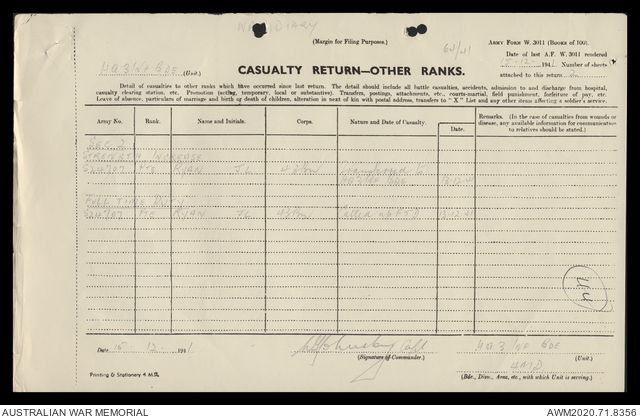 WAR DIARY
(Margin for Filing Purposes.)
64/41
ARMY FORM W. 3011 (BOOKS OF 100).
Date of last A.F. W. 3011 rendered
15-12-1941 Number of sheets
attached to this return
HQ 3 INF BDE (Unit.)
CASUALTY RETURN—OTHER RANKS.
Detail of casualties to other ranks which have occurred since last return. The detail should include all battle casualties, accidents, admission to and discharge from hospital,
casualty clearing station, etc. Promotion (acting, temporary, local or substantive). Transfers, postings, attachments, etc., courts-martial, field punishment, forfeiture of pay, etc.
Leave of absence, particulars of marriage and birth or death of children, alteration in next of kin with postal address, transfers to "X" List and any other items affecting a soldier's service.
Army No. Rank. Name and Initials. Corps. Nature and Date of Casualty. Date. Remarks. (In the case of casualties from wounds or disease, any available information for communication to relatives should be stated.)
SEC 2
STRENGTH INCREASE
S24707 Pte RYAN J.L. Transferred to
HQ 3 INF BDE 13-12-41
FULL TIME DUTY
S24707 Pte RYAN J.L. Called up F.T.D 13-12-41
44
Date 15 12 1941.
(Signature of Commander.)
HQ 3 INF BDE
(Unit.)
4 MD
(Bde., Divn., Area, etc., with which Unit is serving.)
Printing & Stationery 4 M.D.
AUSTRALIAN WAR MEMORIAL
AWM2020.71.8356